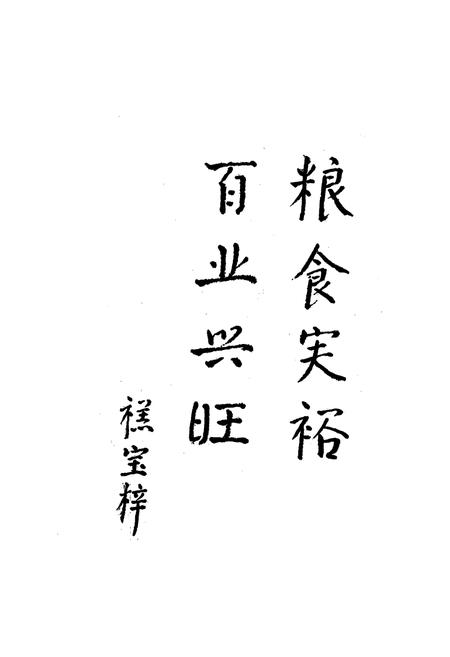 粮食实裕
百业兴旺
禚宝梓